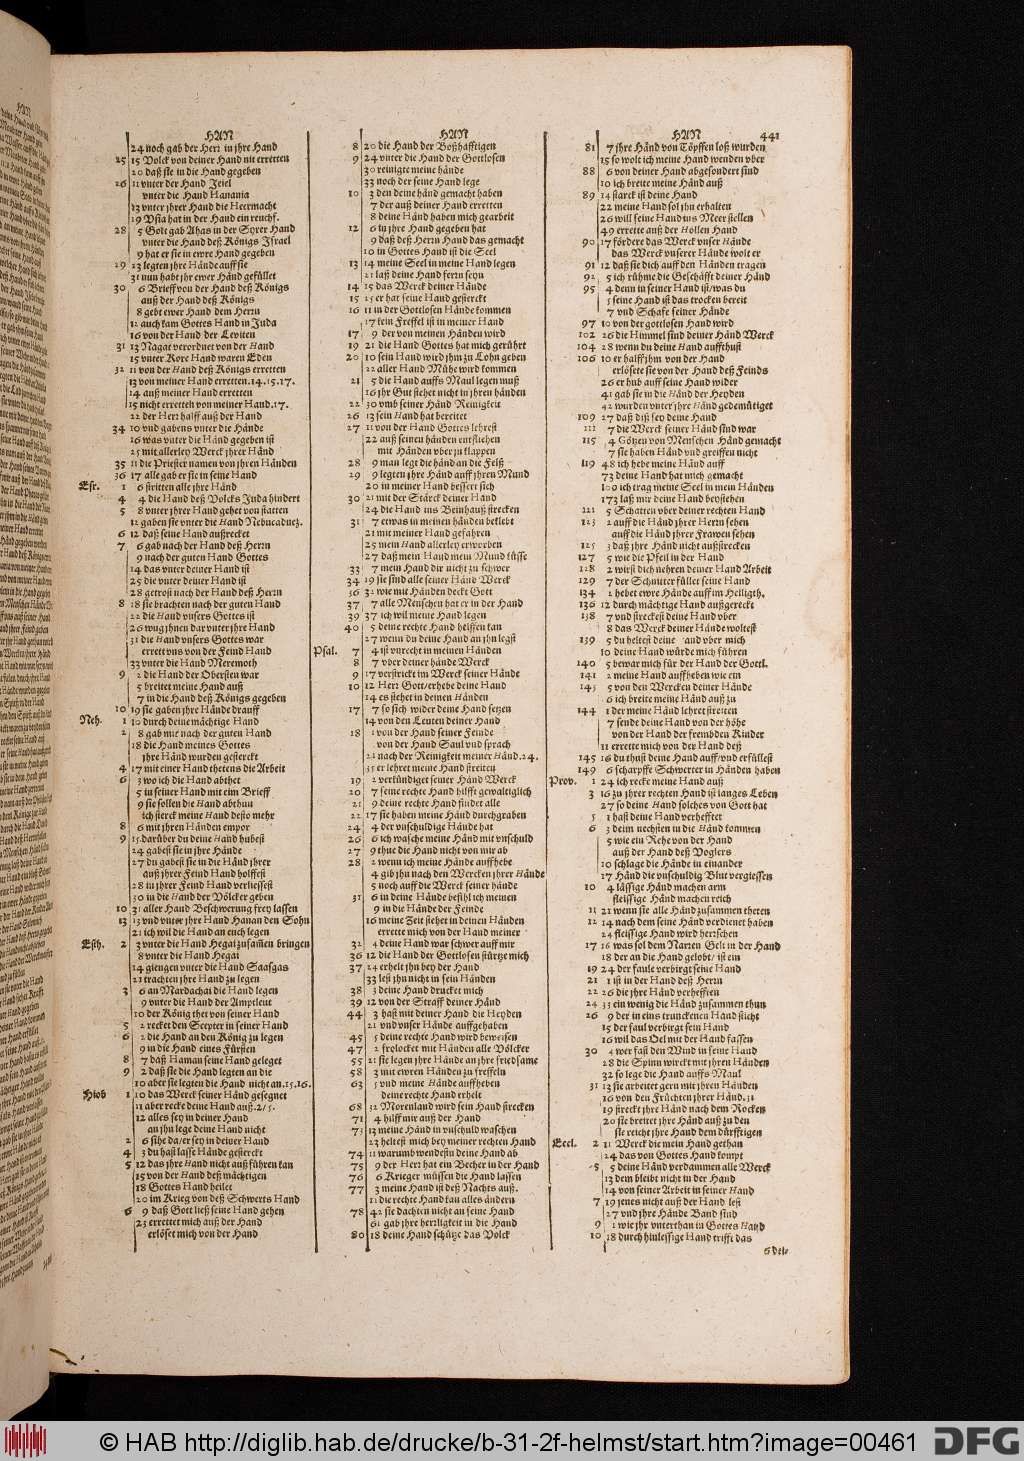 HAN
24 noch gab der Herr in jhre Hand
25 15 Volck von deiner Hand nit erretten
20 daß sie in die Hand gegeben
26 11 vnter der Hand Jeiel
vnter die Hand Hanania
13 vnter jhrer Hand die Heermacht
19 Vsia hat in der Hand ein reuchf.
28 5 Gott gab Ahas in der Syrer Hand
vnter die Hand deß Königs Israel
9 hat er sie in ewre Hand gegeben
29 23 legten jhre Hände auff sie
31 nun habt jhr ewer Händ gefüllet
30 6 Brieff von der Hand deß Königs
auß der Hand deß Königs
8 gebt ewer Hand dem Herrn
12 auch kam Gottes Hand in Juda
16 von der Hand der Leviten
31 13 Nagat verordnet von der Hand
15 vnter Kore Hand waren Eden
32 11 von der Hand deß Königs erretten
13 von meiner Hand erretten.14.15.17.
14 auß meiner Hand erretten
15 nicht erretten von meiner Hand.17.
22 der Herr halff auß der Hand
34 10 vnd gabens vnter die Hände
16 was vnter die Hände gegeben ist
25 mit allerley Werck jhrer Händ
35 11 die Priester namen von jhren Händen
36 17 alle gab er sie in seine Hand
Esr. 1 6 streiten alle jhre Händ
4 4 die Hand deß Volcks Juda hindert
5 8 vnter jhrer Hand gehet von statten
12 gaben sie vnter die Hand Nebucadnez.
6 12 daß seine Hand außrecket
7 6 gab nach der Hand deß Herrn
9 nach der guten Hand Gottes
14 das vnter deiner Hand ist
25 die vnter deiner Hand ist
28 getrost nach der Hand deß Herrn
8 18 sie brachten nach der guten Hand
22 die Hand vnsers Gottes ist
26 wug jhnen dar vnter jhre Hand
31 die Hand vnsers Gottes war
errett vns von der Feind Hand
33 vnter die Hand Meremoth
9 2 die Hand der Obersten war
5 breitet meine Hand auß
7 in die Hand deß Königs gegeben
10 19 sie gaben jhre Hände drauff
Neh. 1 10 durch deine mächtige Hand
2 8 gab mir nach der guten Hand
18 die Hand meines Gottes
jhre Händ wurden gesterckt
4 17 mit einer Hand thetens die Arbeit
6 3 wo ich die Hand abthet
5 in seiner Hand mit eim Brieff
9 sie sollen die Hand abthun
ich sterck meine Hand desto mehr
8 6 mit jhren Händen empor
9 15 darüber du deine Hand hubest
24 gabest sie in jhre Hände
27 du gabest sie in die Händ jhrer
auß jhrer Feind Hand holffest
28 in jhrer Feind Hand verliessest
30 in die Hand der Völcker geben
10 31 aller Hand Beschwerung frey lassen
13 13 vnd vnter jhre Hand Hanan den Sohn
21 ich wil die Hand an euch legen
Esth. 2 3 vnter die Hand Hegai zusamen bringen
8 vnter die Hand Hegai
14 giengen vnter die Hand Saasgas
21 trachten jhre Hand zu legen
3 6 an Mardachai die Hand legen
9 vnter die Hand der Amptleut
10 der König thet von seiner Hand
5 2 recket den Scepter in seiner Hand
6 2 die Hand an den König zu legen
9 in die Hand eines Fürsten
8 7 daß Haman seine Hand geleget
9 2 daß sie die Hand legten an die
10 aber sie legten die Hand nicht an.15.16.
Hiob 1 10 das Werck seiner Händ gesegnet
11 aber recke deine Hand auß.2/5.
12 alles sey in deiner Hand
an jhn lege deine Hand nicht
2 6 sihe da/er sey in deiner Hand
4 3 du hast lasse Hände gesterckt
5 12 das jhre Hand nicht auß führen kan
15 von der Hand deß mächtigen
18 Gottes Hand heilet
20 im Krieg von deß Schwerts Hand
6 9 daß Gott ließ seine Hand gehen
23 errettet mich auß der Hand
erlöset mich von der Hand
HAN
8 20 die Hand der Boßhafftigen
9 24 vnter die Hand der Gottlosen
30 reinigte meine hände
33 noch der seine Hand lege
10 3 den deine händ gemacht haben
7 der auß deiner Hand erretten
8 deine Händ haben mich gearbeit
12 6 in jhre Hand gegeben hat
9 daß deß Herrn Hand das gemacht
10 in Gottes Hand ist die Seel
13 14 meine Seel in meine Hand legen
21 laß deine Hand ferrn seyn
14 15 das Werck deiner Hände
15 25 er hat seine Hand gesterckt
16 11 in der Gottlosen Hände kommen
17 kein Freffel ist in meiner Hand
17 9 der von meinen Händen wird
19 21 die Hand Gottes hat mich gerührt
20 10 sein Hand wird jhm zu Lohn geben
22 aller Hand Mühe wird kommen
21 5 die Hand auffs Maul legen muß
16 jhr Gut stehet nicht in jhren händen
22 30 vmb seiner Händ Reinigkeit
26 13 sein Hand hat bereitet
27 11 von der Hand Gottes lehrest
22 auß seinen händen entfliehen
mit Händen vber jn klappen
28 9 man legt die händ an die Felß
29 9 legten jhre Händ auff jhren Mund
20 in meiner Hand bessert sich
30 21 mit der Stärck deiner Hand
24 die Hand ins Beinhauß strecken
31 7 etwas in meinen händen beklebt
21 mit meiner Hand gefahren
25 mein Hand allerley erworben
27 daß mein Hand mein Mund küsse
33 7 mein Hand dir nicht zu schwer
34 19 sie sind alle seiner Händ Werck
36 32 wie mit Händen deckt Gott
37 7 alle Menschen hat er in der Hand
39 37 ich wil meine Hand legen
40 5 deine rechte Hand helffen kan
27 wenn du deine Hand an jhn legst
Psal. 7 4 ist vnrecht in meinen Händen
8 7 vber deiner hände Werck
9 17 verstrickt im Werck seiner Hände
10 12 Herr Gott/erhebe deine Hand
14 es stehet in deinen Händen
17 7 so sich wider deine Hand setzen
14 von den Leuten deiner Hand
18 1 von der Hand seiner Feinde
von der Hand Saul vnd sprach
21 nach der Reinigkeit meiner Händ.24.
35 er lehret meine Hand streiten
19 2 verkündiget seiner Händ Werck
20 7 seine rechte Hand hilfft gewaltiglich
21 9 deine rechte Hand findet alle
22 17 sie haben meine Händ durchgraben
24 4 der vnschuldige Hände hat
26 6 ich wasche meine Händ mit vnschuld
27 9 thue die Hand nicht von mir ab
28 2 wenn ich meine Hände auffhebe
4 gib jhn nach den Wercken jhrer Hände
5 noch auff die Werck seiner hände
31 6 in deine Hände befihl ich meinen
9 in die Hände der Feinde
16 meine Zeit stehet in deinen Händen
errette mich von der Hand meiner
32 4 deine Hand war schwer auff mir
36 12 die Hand der Gottlosen stürtze mich
37 24 erhelt jhn bey der Hand
33 lest jhn nicht in sein Händen
38 3 deine Hand drucket mich
39 12 von der Straff deiner Händ
44 3 hast mit deiner Hand die Heyden
21 vnd vnser Hände auffgehaben
45 5 deine rechte Hand wird beweisen
47 2 frolocket mit Händen alle Völcker
55 21 sie legen jhre Hände an jhre friedsame
58 3 mit ewren Händen zu freffeln
63 5 vnd meine Hände auffheben
deine rechte Hand erhelt
68 32 Morenland wird sein Hand strecken
71 4 hilff mir auß der Hand
73 13 meine Händ in vnschuld waschen
23 heltest mich bey meiner rechten Hand
74 11 warumb wendestu deine Hand ab
75 9 der Herr hat ein Becher in der Hand
76 6 Krieger müssen die Hand lassen
77 3 meine Hand ist deß Nachts auß.
11 die rechte Hand kan alles ändern
78 42 sie dachten nicht an seine Hand
61 gab jhre herrligkeit in die Hand
80 18 deine Hand schütze das Volck
HAN 441
81 7 jhre Händ von Töpffen loß wurden
15 so wolt ich meine Hand wenden vber
88 6 von deiner Hand abgesondert sind
10 ich breite meine Händ auß
89 14 starck ist deine Hand
22 meine Hand sol jhn erhalten
26 will seine Hand ins Meer stellen
49 errette auß der Hollen Hand
90 17 fördere das Werck vnser Hände
das Werck vnserer Hände wolt er
91 12 daß sie dich auff den Händen tragen
92 5 ich rühme die Geschäfft deiner Händ
95 4 denn in seiner Hand ist/was du
5 seine Hand ist das trocken bereit
7 vnd Schafe seiner Hände
97 10 von der gottlosen Hand wird
102 26 die Himmel sind deiner Händ Werck
104 28 wenn du deine Hand auffthust
106 10 er halff jhm von der Hand
erlösete sie von der Hand deß Feinds
26 er hub auff seine Hand wider
41 gab sie in die Händ der Heyden
42 wurden vnter jhre Händ gedemütiget
109 27 daß diß sey deine Hand
111 7 die Werck seiner Händ sind war
115 4 Götzen von Menschen Händ gemacht
7 sie haben Händ vnd greiffen nicht
119 48 ich hebe meine Händ auff
73 deine Hand hat mich gemacht
109 ich trag meine Seel in mein Händen
173 laß mir deine Hand beystehen
121 5 Schatten vber deiner rechten Hand
123 2 auff die Händ jhrer Herrn sehen
auff die Händ jhrer Frawen sehen
125 3 daß jhre Händ nicht außstrecken
127 5 wie die Pfeil in der Hand
128 2 wirst dich nehren deiner Hand Arbeit
129 7 der Schnitter füllet seine Hand
134 2 hebet ewre Hände auff im Heiligth.
136 12 durch mächtige Hand außgereckt
138 7 vnd streckest deine Hand vber
8 das Werck deiner Hände wollest
139 5 du heltest deine Hand vber mich
10 deine Hand würde mich führen
140 5 bewar mich für der Hand der Gottl.
141 2 meine Hand auffheben wie ein
143 5 von den Wercken deiner Hände
6 ich breite meine Händ auß zu
144 1 der meine Händ lehret streiten
7 sende deine Hand von der höhe
von der Hand der frembden Kinder
11 errette mich von der Hand deß
145 16 du thust deine Hand auff/vnd erfüllest
149 6 scharpffe Schwerter in Händen haben
Prov. 1 24 ich recke meine Hand auß
3 16 zu jhrer rechten Hand ist langes Leben
27 so deine Hand solches von Gott hat
5 1 hast deine Hand verhefftet
6 3 deim nechsten in die Händ kommen
5 wie ein Rehe von der Hand
auß der Hand deß Voglers
10 schlage die Hände in einander
17 Händ die vnschuldig Blut vergiessen
10 4 lässige Händ machen arm
fleissige Händ machen reich
11 21 wenn sie alle Händ zusammen theten
12 14 nach dem seine Händ verdienet haben
24 fleissige Hand wird herrschen
17 16 was sol dem Narren Gelt in der Hand
18 der an die Hand gelobt/ ist ein
19 24 der faule verbirgt seine Hand
21 1 ist in der Hand deß Herrn
22 26 die jhre Händ verhefften
24 33 ein wenig die Händ zusammen thun
26 9 der in eins trunckenen Hand sticht
15 der faul verbirgt sein Hand
16 wil das Oel mit der Hand fassen
30 4 wer faßt den Wind in seine Hand
28 die Spinn wirckt mit jhren Händen
32 so lege die Hand auffs Maul
31 13 sie arbeitet gern mit jhren Händen
16 von den Früchten jhrer Händ.31
19 streckt jhre Händ nach dem Rocken
20 sie breitet jhre Händ auß zu den
sie reicht jhre Hand dem dürfftigen
Eccl. 2 11 Werck die mein Hand gethan
24 das von Gottes Hand kompt
5 5 deine Händ verdammen alle Werck
13 dem bleibt nicht in der Hand
14 von seiner Arbeit in seiner Hand
7 19 jenes nicht auß der Hand lest
27 vnd jhre Hände Band sind
9 1 wie jhr vnterthan in Gottes Hand
10 18 durch hinlessige Hand trifft das
6 dei⸗
© HAB http://diglib.hab.de/drucke/b-31-2f-helmst/start.htm?image=00461
DFG